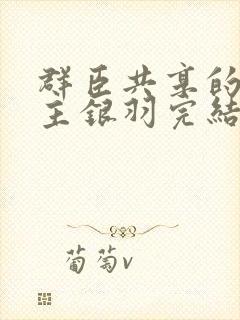 群臣共享的
主银羽完结
葡萄v